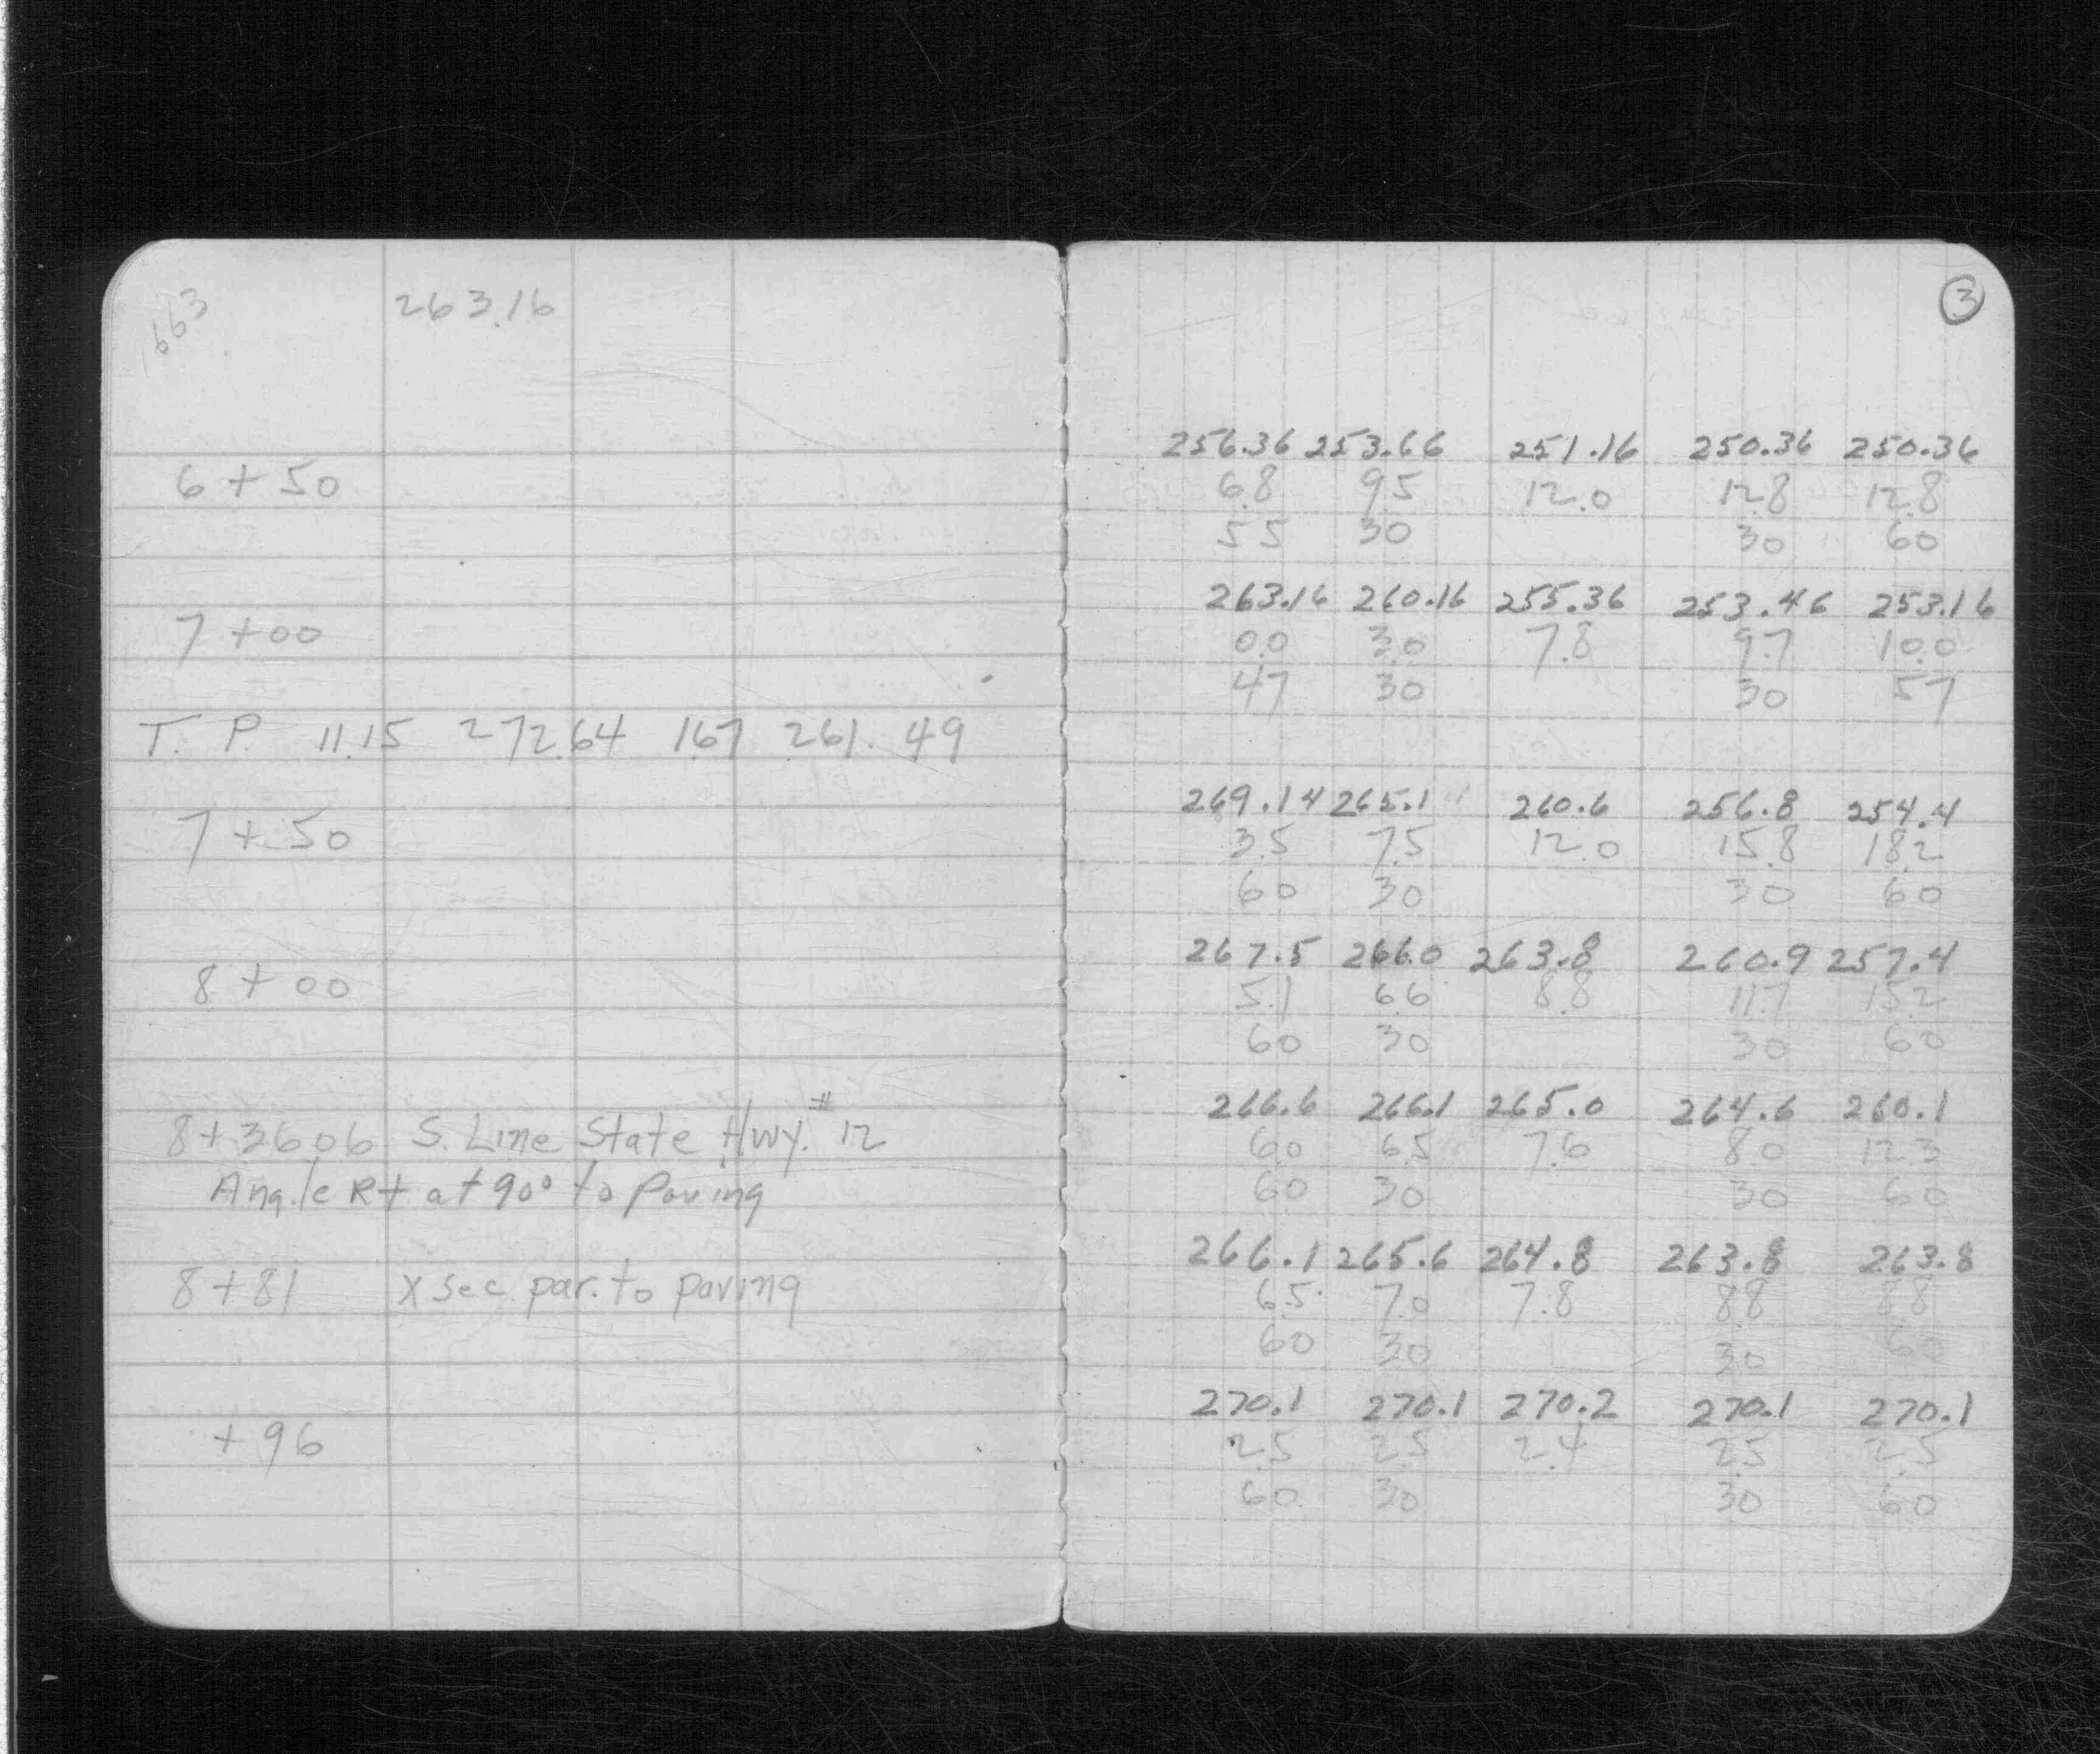 1663 263.16
6 + 50
7 + 00
T. P. 11.15 272.64 1.67 261.49
7 + 50
8 + 00
8 + 36.06 S. Line State Hwy. #12
Angle Rt at 90° to Paving
8 + 81 X sec. par. to paving
+ 96
3
256.36 253.66 251.16 250.36 250.36
6.8 9.5 12.0 12.8 12.8
55 30 30 60
263.16 260.16 255.36 253.46 253.16
0.0 3.0 7.8 9.7 10.0
47 30 30 57
269.14 265.1 260.6 256.8 254.4
3.5 7.5 12.0 15.8 18.2
60 30 30 60
267.5 266.0 263.8 260.9 257.4
5.1 6.6 8.8 11.7 15.2
60 30 30 60
266.6 266.1 265.0 264.6 260.1
6.0 6.5 7.6 8.0 12.3
60 30 30 60
266.1 265.6 264.8 263.8 263.8
6.5 7.0 7.8 8.8 8.8
60 30 30 60
270.1 270.1 270.2 270.1 270.1
2.5 2.5 2.4 2.5 2.5
60 30 30 60